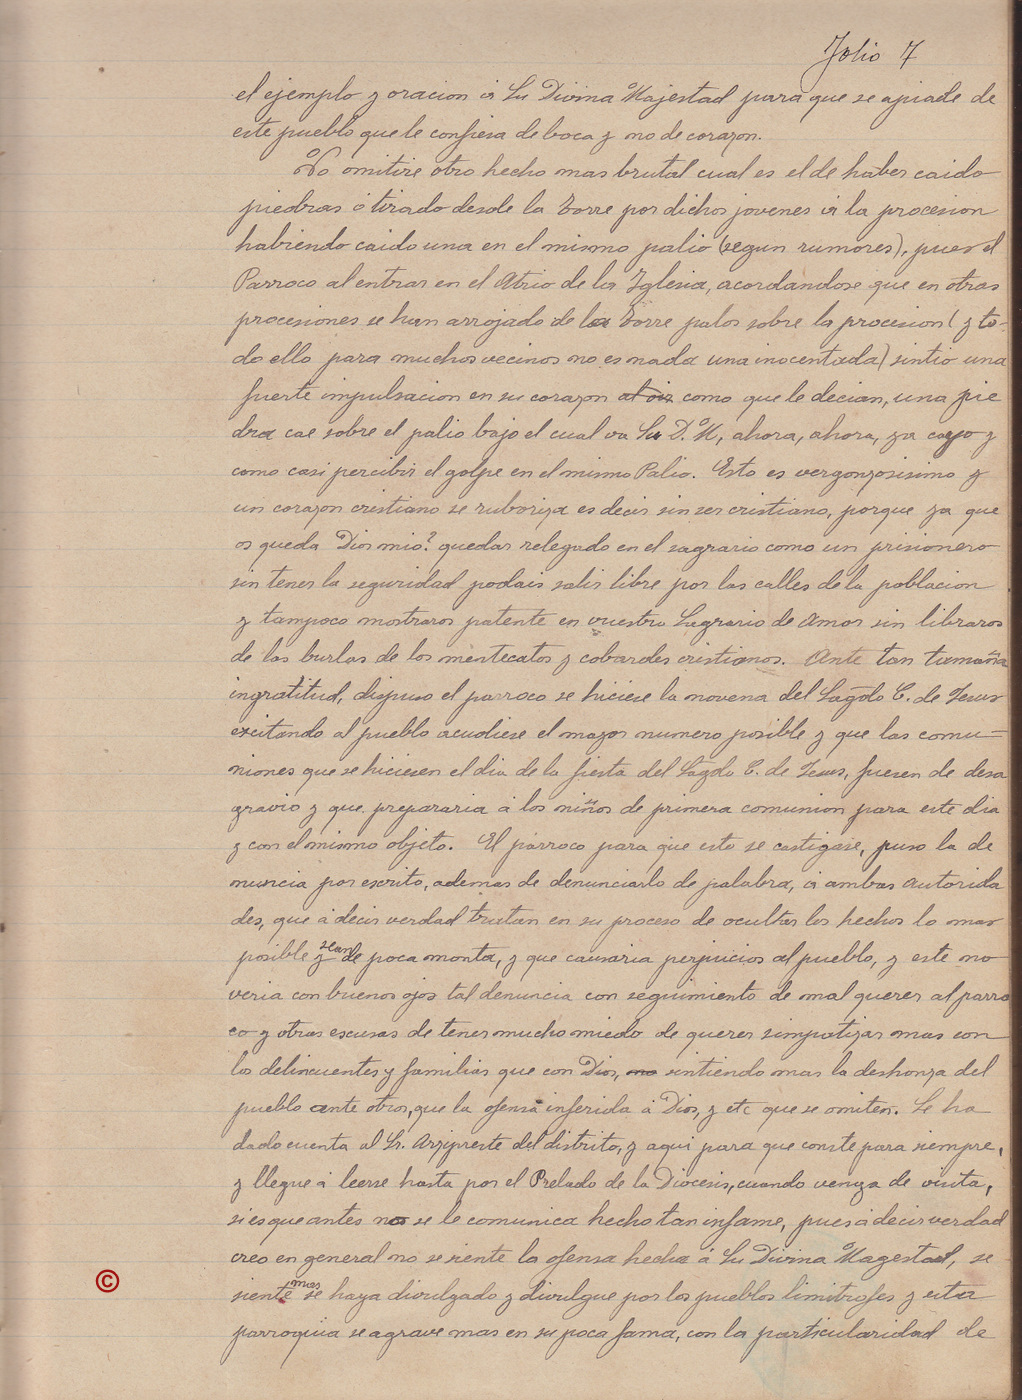 Folio 7
el ejemplo y oracion á Su Divina Majestad para que se apiade de
este pueblo que le confiesa de boca y no de corazon.
No omitire otro hecho mas brutal cual es el de haber caido
piedras ó tirado desde la Torre por dichos jovenes á la procesion
habiendo caido una en el mismo palio (segun rumores), pues el
Parroco al entrar en el Atrio de la Yglesia, acordandose que en otras
procesiones se han arrojado de la Torre palos sobre la procesion (y to-
do ello para muchos vecinos no es nada una inocentada) sintio una
fuerte impulsacion en su corazon al oir como que le decian, una pie
dra cae sobre el palio bajo el cual va Su D. M, ahora, ahora, ya cayo y
como casi percibir el golpe en el mismo Palio. Esto es vergonzosisimo y
un corazon cristiano se ruboriza es decir sin ser cristiano, porque ya que
os queda Dios mio? quedar relegado en el sagrario como un prisionero
sin tener la seguridad podais salir libre por las calles de la poblacion
y tampoco mostraros patente en vuestro Sagrario de Amor sin libraros
de las burlas de los mentecatos y cobardes cristianos. Ante tan tamaña
ingratitud, dispuso el parroco se hiciese la novena del Sagdo C. de Jesus
excitando al pueblo acudiese el mayor numero posible y que las comu=
niones que se hiciesen el dia de la fiesta del Sagdo C. de Jesus, fuesen de desa
gravio y que prepararia á los niños de primera comunion para este dia
y con el mismo objeto. El párroco para que esto se castigase, puso la de
nuncia por escrito, ademas de denunciarlo de palabra, á ambas autorida
des, que á decir verdad tratan en su proceso de ocultar los hechos lo mas
posible y sean de poca monta, y que causaria perjuicios al pueblo, y este no
veria con buenos ojos tal denuncia con seguimiento de mal querer al parro
co y otras escusas de tener mucho miedo de querer simpatizar mas con
los delincuentes y familias que con Dios, no sintiendo mas la deshonra del
pueblo ante otros, que la ofensa inferida á Dios, y etc que se omiten. Se ha
dado cuenta al Sr. Arzipreste del distrito, y aqui para que conste para siempre,
y llegue á leerse hasta por el Prelado de la Diocesis, cuando venga de visita,
si es que antes no se le comunica hecho tan infame, pues á decir verdad
creo en general no se siente la ofensa hecha á Su Divina Magestad, se
siente mas se haya divulgado y divulgue por los pueblos limitrofes y esta
parroquia se agrave mas en su poca fama, con la particularidad de
©